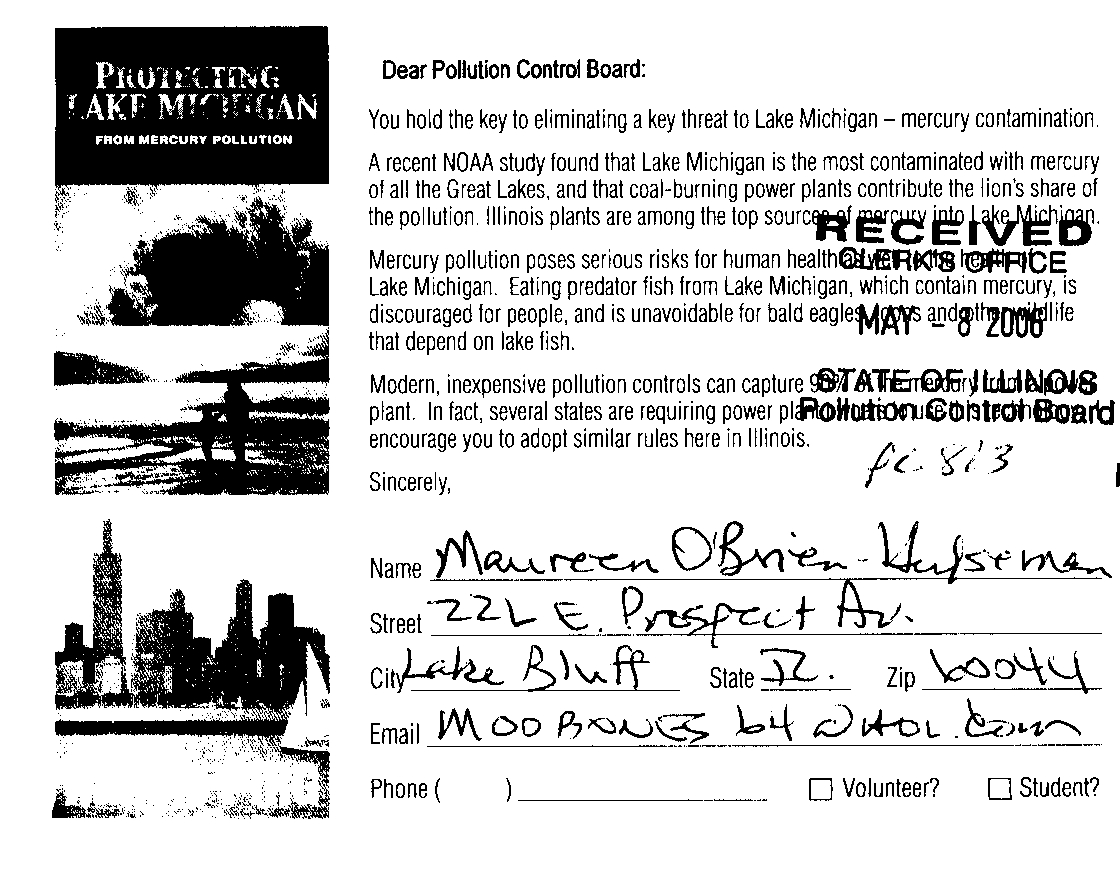 PROTECTING
LAKE MICHIGAN
FROM MERCURY POLLUTION
Dear Pollution Control Board:
You hold the key to eliminating a key threat to Lake Michigan – mercury contamination.
A recent NOAA study found that Lake Michigan is the most contaminated with mercury
of all the Great Lakes, and that coal-burning power plants contribute the lion's share of
the pollution. Illinois plants are among the top sources of mercury into Lake Michigan.
RECEIVED
CLERK'S OFFICE
MAY - 8 2006
STATE OF ILLINOIS
Pollution Control Board
Mercury pollution poses serious risks for human health
Lake Michigan. Eating predator fish from Lake Michigan, which contain mercury, is
discouraged for people, and is unavoidable for bald eagles, and other wildlife
that depend on lake fish.
Modern, inexpensive pollution controls can capture
plant. In fact, several states are requiring power
encourage you to adopt similar rules here in Illinois.
pc 813
Sincerely,
Name Maureen O'Brien-Hulseman
Street E. Prospect Av.
City Lake Bluff State IL. Zip 60044
Email
Phone ( ) Volunteer? Student?